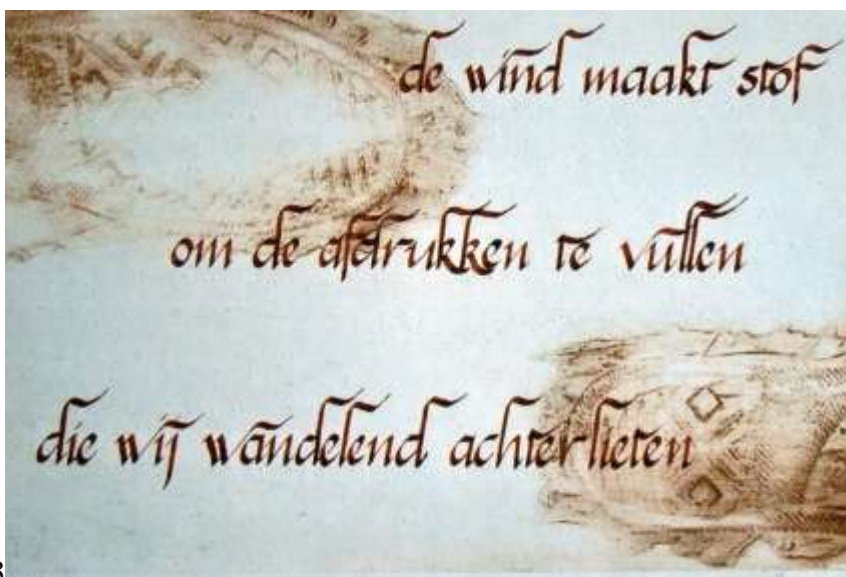 de wind maakt stof
om de afdrukken te vullen
die wij wandelend achterlieten